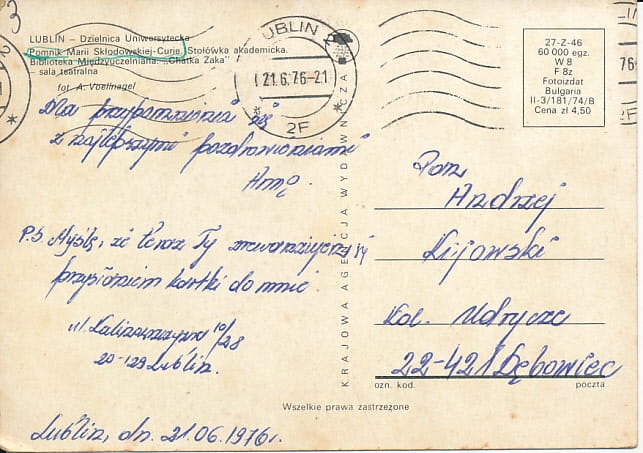 LUBLIN – Dzielnica Uniwersytecka
Pomnik Marii Skłodowskiej-Curie. Stołówka akademicka.
Biblioteka Międzyuczelniana. „Chatka Żaka"
– sala teatralna
fot A. Voellnagel
LUBLIN
21.6.76-21
2F
27-Z-46
60 000 egz.
W 8
F 8z
Fotoizdat
Bułgaria
II-3/181/74/B
Cena zł 4,50
76-
2F
Na przypomnienie się
z najlepszymi pozdrowieniami
P.S Myślę, że teraz Ty
przysłaniem kartki do mnie.
10/28
20-129 Lublin.
Lublin, dn. 21.06.1976r.
KRAJOWA AGENCJA WYDAWNICZA
Pan
Andrzej
Kijowski
Kol. Udrycze
22-421 Dębowiec
ozn. kod. poczta
Wszelkie prawa zastrzeżone